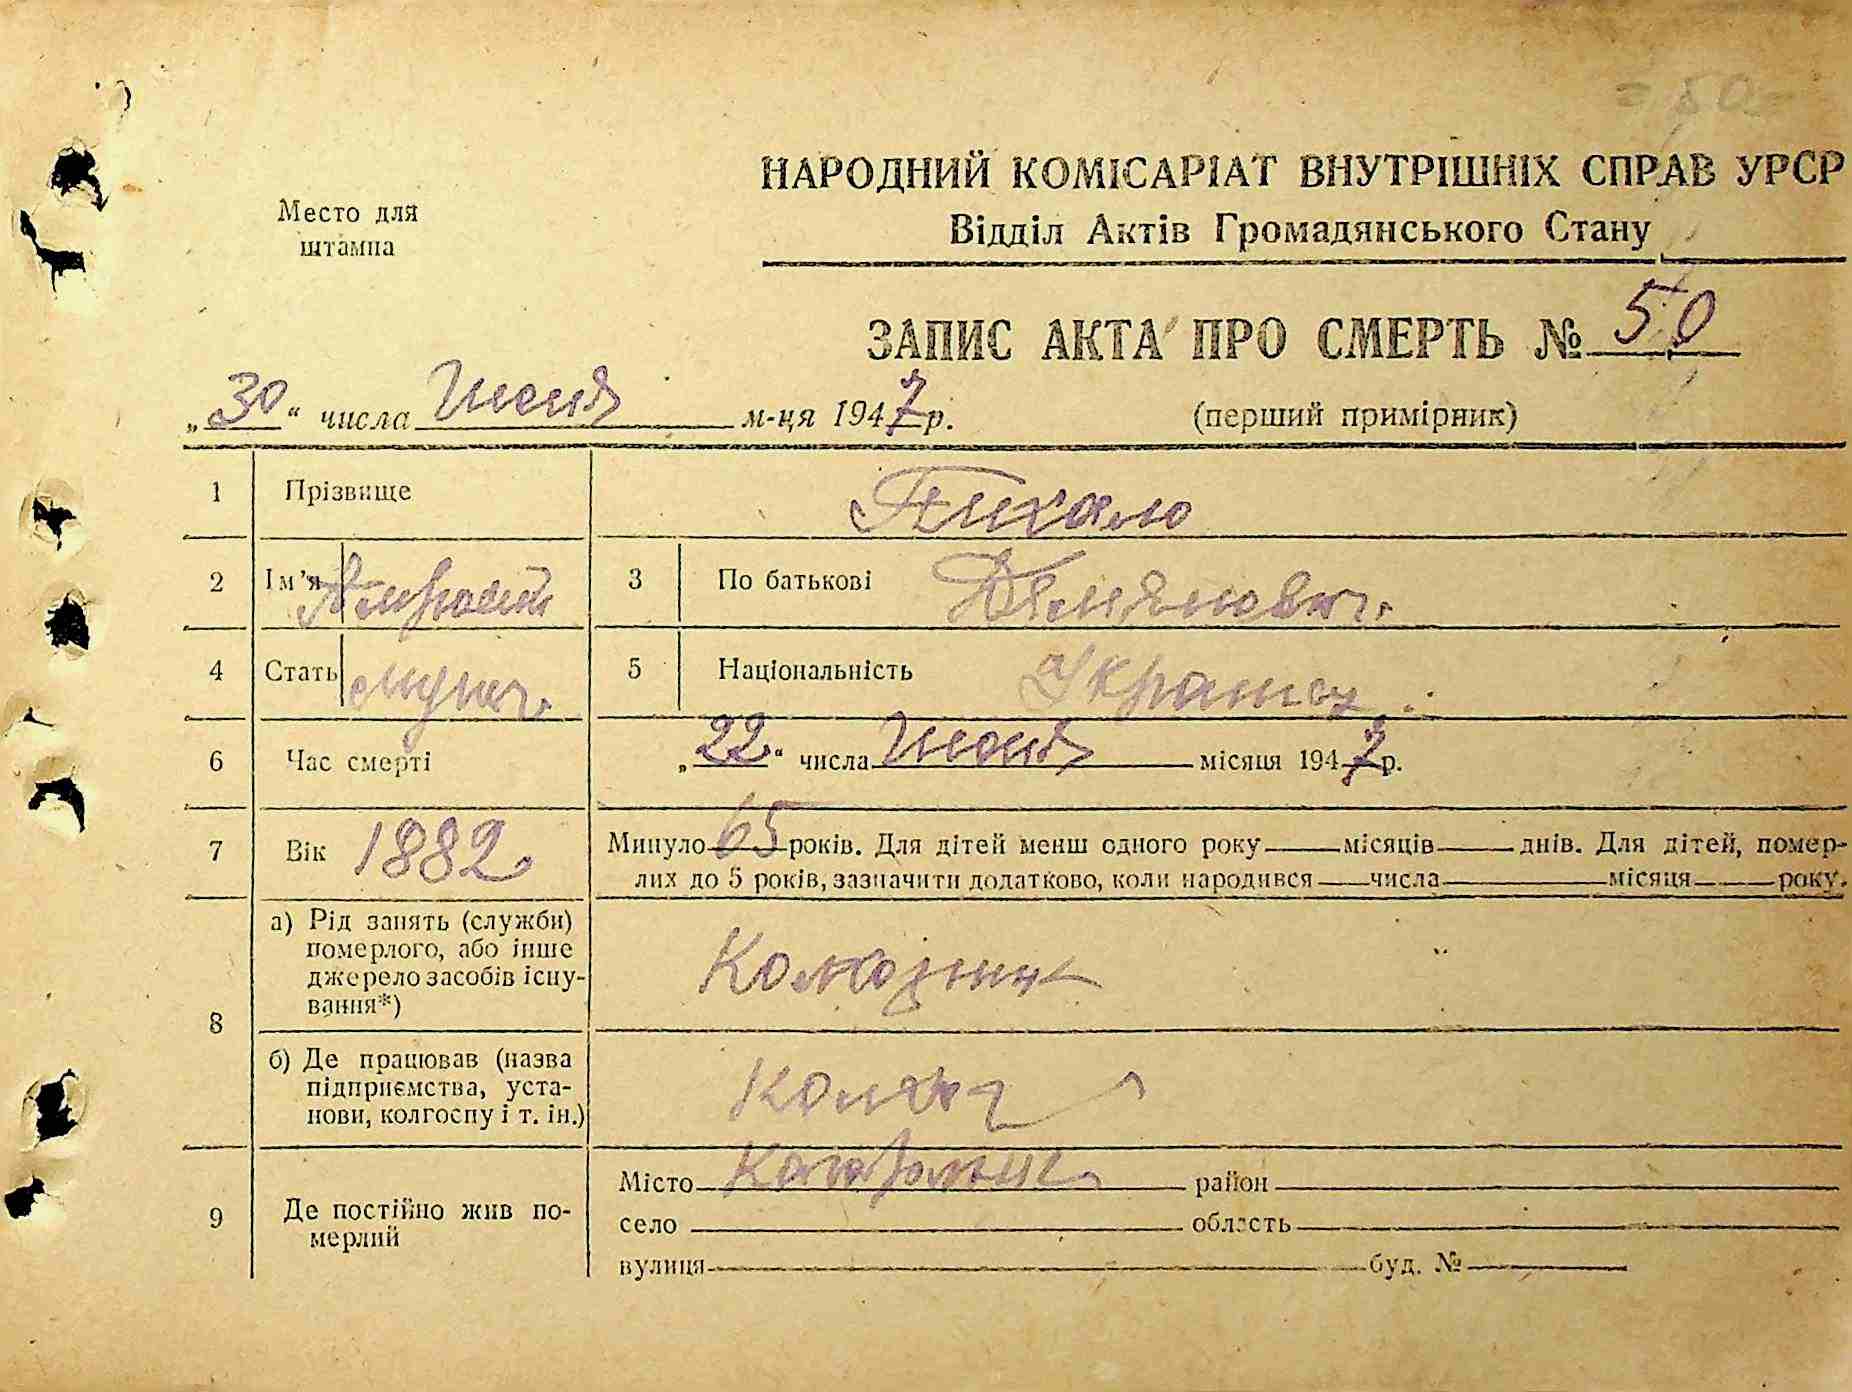 = 50 =
Место для
штампа
НАРОДНИЙ КОМІСАРІАТ ВНУТРІШНІХ СПРАВ УРСР
Відділ Актів Громадянського Стану
ЗАПИС АКТА ПРО СМЕРТЬ № 50
„30“ числа Июня м-ця 1947 р. (перший примірник)
1 Прізвище Пихало
2 Ім’я Амросий 3 По батькові Демянович.
4 Стать мужч. 5 Національність Украинец.
6 Час смерті „22“ числа Июня місяця 1947 р.
7 Вік 1882 Минуло 65 років. Для дітей менш одного року місяців днів. Для дітей, помер-
лих до 5 років, зазначити додатково, коли народився числа місяця року.
8 а) Рід занять (служби)
померлого, або інше
джерело засобів існу-
вання*) Колхозник
б) Де працював (назва
підприємства, уста-
нови, колгоспу і т. ін.) Колхоз
9 Де постійно жив по-
мерлий
Місто район
село область
вулиця буд. №